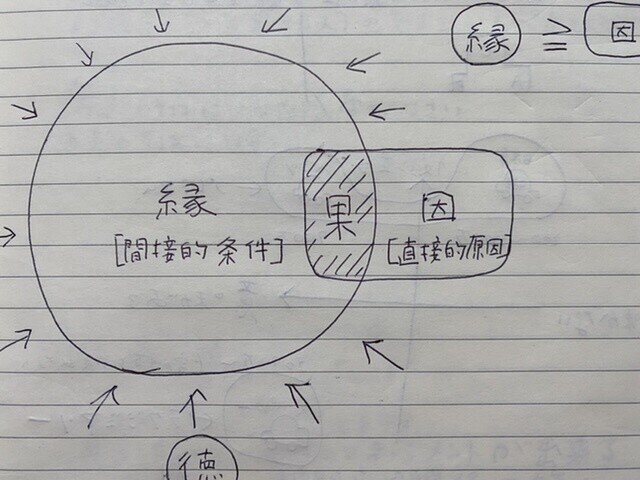 縁 ≧ 因
縁 果 因
[間接的条件] [直接的原因]
徳